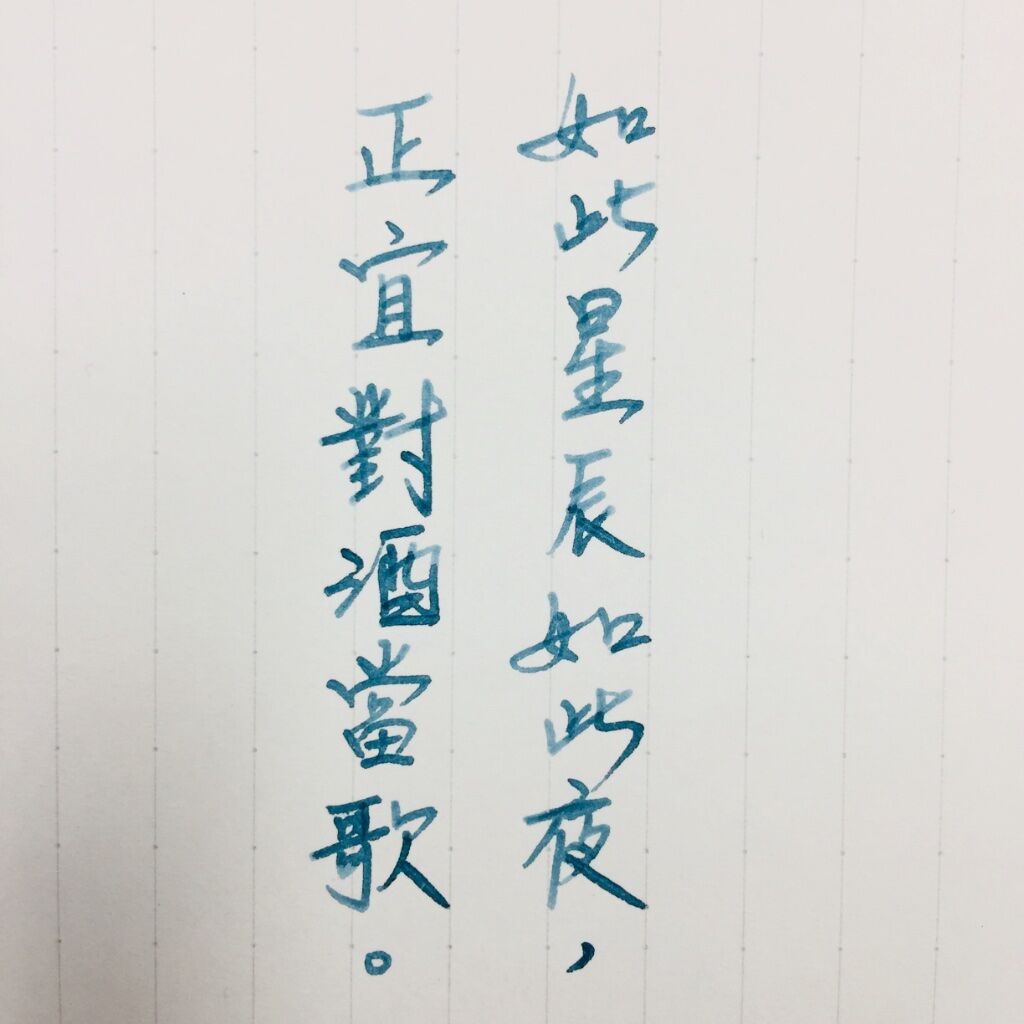 如此星辰如此夜，
正宜對酒當歌。